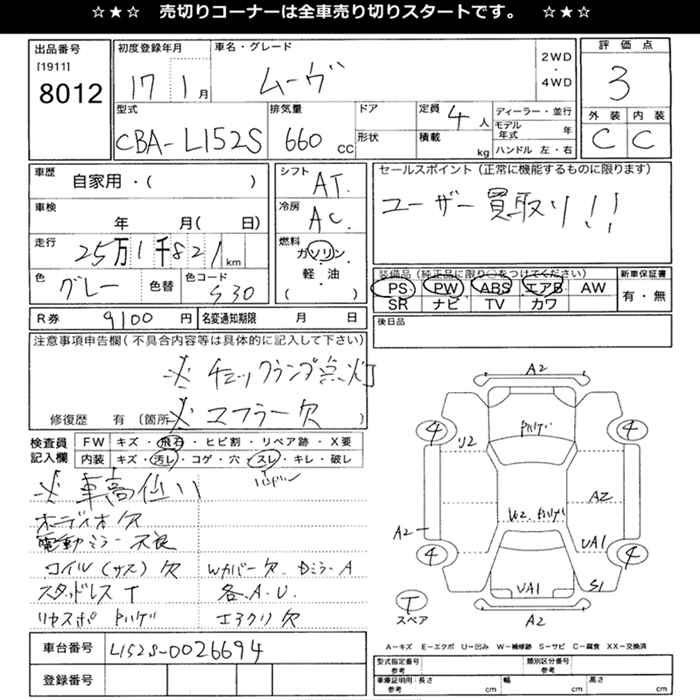 ☆★☆ 売切りコーナーは全車売り切りスタートです。 ☆★☆
出品番号
[1911]
8012
初度登録年月
17 1月
車名・グレード
ムーヴ
2WD
・
4WD
評価点
3
外装 内装
C C
型式
CBA-L152S
排気量
660 CC
ドア
形状
定員 4人
積載 kg
ディーラー・並行
モデル年式 年
ハンドル 左・右
車歴
自家用・( )
車検
年 月( 日)
走行
25万1千821km
色
グレー
色替
色コード
S30
シフト
AT
冷房
AC
燃料
ガソリン
・
軽・油
( )
セールスポイント (正常に機能するものに限ります)
ユーザー買取り!!
装備品(純正品に限り○をつけてください)
PS PW ABS エアB AW
SR ナビ TV カワ
新車保証書
有・無
後日品
R券 9100円
名変通知期限 月 日
注意事項申告欄(不具合内容等は具体的に記入して下さい)
※ チェックランプ点灯
※ マフラー欠
修復歴 有 (箇所 )
検査員
記入欄
FW キズ・飛石・ヒビ割・リペア跡・X要
内装 キズ・汚レ・コゲ・穴・スレ・キレ・破レ
ハンドル
※ 車高低い
オーディオ欠
電動ミラー不良
コイル(サス)欠 Wカバー欠 DミラーA
スタッドレスT 各.A.U.
リヤスポ ハゲ エアクリ欠
車台番号 L152S-0026694
登録番号
A2
4 4
U2
ハゲ
A2
A2
U2.
UA1
4 4
UA1
S1
T
スペア
A2
A-キズ E-エクボ U-凹み W-補修跡 S-サビ C-腐食 XX-交換済
型式指定番号
参考
類別区分番号
参考
車庫証明用・長さ
参考 cm
幅
cm
高さ
cm